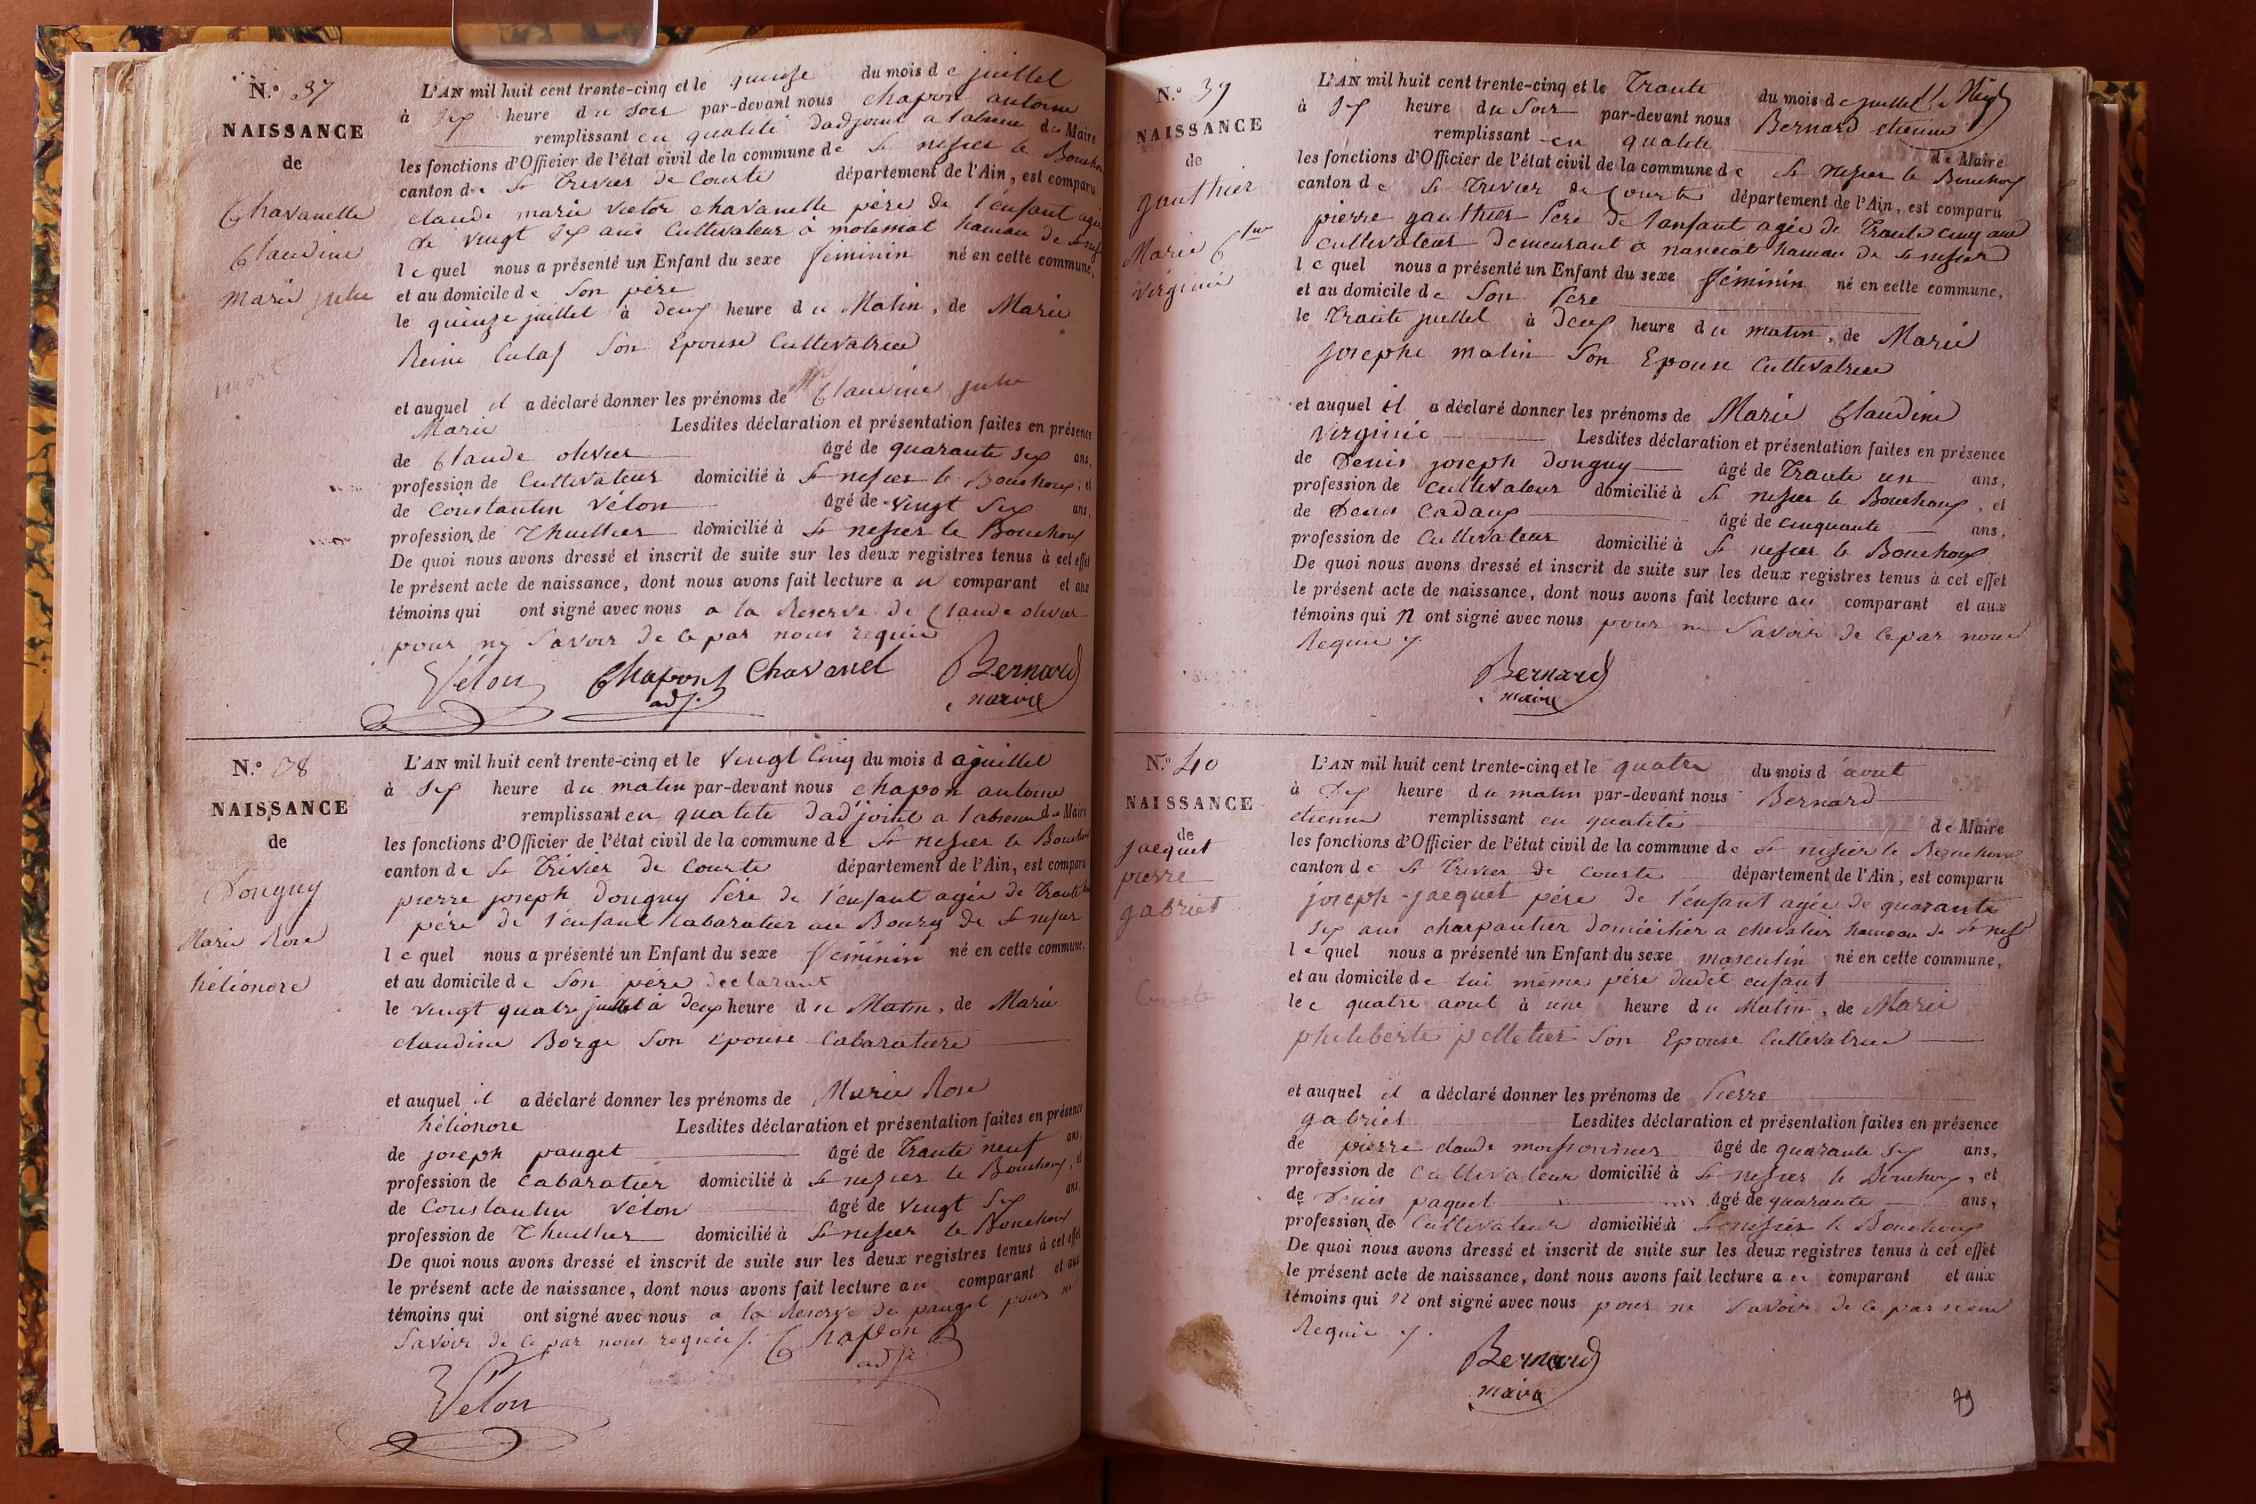 N.º 37
NAISSANCE
de
Chavanelle
Claudine
Marie julie
mort
L'AN mil huit cent trente-cinq et le quinze du mois de juillet
à six heure du soir par-devant nous chapon antoine
remplissant en qualité dadjoint a labsence du Maire
les fonctions d'Officier de l'état civil de la commune de St nesier le Bouchoux
canton de St trivier de Courte département de l'Ain, est comparu
claude marie victor chavanelle père de l'enfant agée
de vingt six ans Cultivateur à molemat hameau de St nesier
lequel nous a présenté un Enfant du sexe féminin né en cette commune,
et au domicile de son père
le quinze juillet à deux heure du Matin, de Marie
Reine Culas son Epouse Cultivatrice
et auquel il a déclaré donner les prénoms de Claudine julie
Marie Lesdites déclaration et présentation faites en présence
de Claude olivier âgé de quarante six ans,
profession de Cultivateur domicilié à St nesier le Bouchoux, et
de Constantin Vélon âgé de vingt six ans,
profession de Thuillier domicilié à St nesier le Bouchoux
De quoi nous avons dressé et inscrit de suite sur les deux registres tenus à cet effet
le présent acte de naissance, dont nous avons fait lecture au comparant et aux
témoins qui ont signé avec nous a la Reserve de Claude olivier
pour ne savoir de ce par nous requis
Vélon Chapon adj. Chavanel Bernard maire
N.º 38
NAISSANCE
de
Donguy
Marie Rose
héléonore
L'AN mil huit cent trente-cinq et le vingt cinq du mois d ajuillet
à six heure du matin par-devant nous chapon antoine
remplissant en qualité dadjoint a l'absence du Maire
les fonctions d'Officier de l'état civil de la commune de St nesier le Bouchoux
canton de St Trivier de Courte département de l'Ain, est comparu
pierre joseph Donguy Père de l'enfant agée de trante
père de l'enfant Cabaratier au Bourg de St nesier
lequel nous a présenté un Enfant du sexe féminin né en cette commune,
et au domicile de son père declarant
le vingt quatre juillet à deux heure du Matin, de Marie
claudine Borge son Epouse Cabaratiere
et auquel il a déclaré donner les prénoms de Marie Rose
héléonore Lesdites déclaration et présentation faites en présence
de joseph pauget âgé de trante neuf ans,
profession de Cabaratier domicilié à St nesier le Bouchoux, et
de Constantin Vélon âgé de vingt six ans,
profession de Thuillier domicilié à St nesier le Bouchoux
De quoi nous avons dressé et inscrit de suite sur les deux registres tenus à cet effet
le présent acte de naissance, dont nous avons fait lecture au comparant et aux
témoins qui ont signé avec nous a la Reserve de pauget pour ne
savoir de ce par nous requis Chapon adj.
Vélon
N.º 39
NAISSANCE
de
gauthier
Marie Cine
virginie
L'AN mil huit cent trente-cinq et le trante du mois de juillet
à six heure du soir par-devant nous Bernard etienne
remplissant en qualité de Maire
les fonctions d'Officier de l'état civil de la commune de St nesier le Bouchoux
canton de St Trivier de Courte département de l'Ain, est comparu
pierre gauthier Père de lanfant agée de trante cinq ans
cultivateur demeurant à naseciat hameau de St nesier
lequel nous a présenté un Enfant du sexe féminin né en cette commune,
et au domicile de son Père
le trante juillet à deux heure du matin, de Marie
josephe matin son Epouse Cultivatrice
et auquel il a déclaré donner les prénoms de Marie Claudine
virginie Lesdites déclaration et présentation faites en présence
de Denis joseph Donguy âgé de trante un ans,
profession de Cultivateur domicilié à St nesier le Bouchoux, et
de Denis Cadaux âgé de cinquante ans,
profession de Cultivateur domicilié à St nesier le Bouchoux
De quoi nous avons dressé et inscrit de suite sur les deux registres tenus à cet effet
le présent acte de naissance, dont nous avons fait lecture au comparant et aux
témoins qui n ont signé avec nous pour ne savoir de ce par nous
Requis
Bernard
maire
N.º 40
NAISSANCE
de
jacquet
pierre
gabriel
L'AN mil huit cent trente-cinq et le quatre du mois d'aout
à six heure du matin par-devant nous Bernard
etienne remplissant en qualité de Maire
les fonctions d'Officier de l'état civil de la commune de St nesier le Bouchoux
canton de St Trivier de Courte département de l'Ain, est comparu
joseph jacquet père de l'énfant agée de quarante
six ans charpantier domicilier a chevalier hameau de St nesi
lequel nous a présenté un Enfant du sexe masculin né en cette commune,
et au domicile de lui même père dudit enfant
le quatre aout à une heure du Matin, de Marie
philiberte pelletier son Epouse Cultivatrice
et auquel il a déclaré donner les prénoms de Pierre
gabriel Lesdites déclaration et présentation faites en présence
de pierre claude âgé de quarante six ans,
profession de Cultivateur domicilié à St nesier le Bouchoux, et
de Denis paquet âgé de quarante ans,
profession de Cultivateur domicilié à St nesier le Bouchoux
De quoi nous avons dressé et inscrit de suite sur les deux registres tenus à cet effet
le présent acte de naissance, dont nous avons fait lecture au comparant et aux
témoins qui n ont signé avec nous pour ne savoir de ce par nous
Requis
Bernard
maire
79